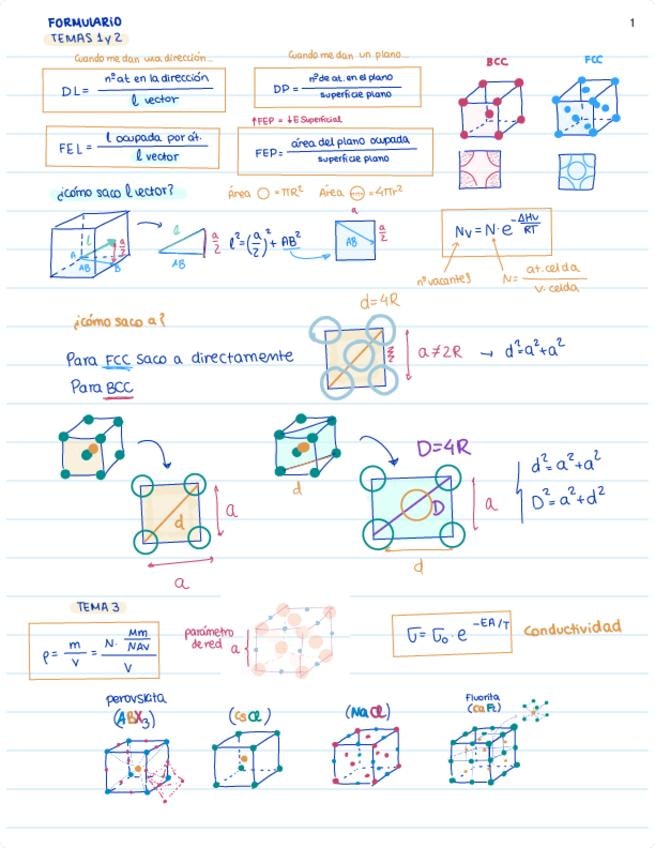 1
FORMULARIO
TEMAS 1 y 2
Cuando me dan una dirección...
DL = nº at en la dirección / l vector
FEL = l ocupada por at. / l vector
Cuando me dan un plano...
DP = nº de at. en el plano / superficie plano
↑FEP = ↓E Superficial
FEP = área del plano ocupada / superficie plano
BCC
FCC
¿cómo saco l vector?
Área ○ = πR² Área = 4πr²
l a/2 A AB B
l a/2 AB
l² = (a/2)² + AB²
a AB a/2
Nv = N · e^(-ΔHv/RT)
nº vacantes
N = at. celda / v. celda
¿cómo saco a?
d=4R
Para FCC saco a directamente
a≠2R → d²=a²+a²
Para BCC
d
a
a
d
D=4R
D
a
d
d²=a²+a²
D²=a²+d²
TEMA 3
ρ = m / V = N · Mm/NAv / V
parámetro de red a
σ = σ₀ · e^(-EA/T) conductividad
perovskita
(ABX₃)
(CsCl)
(NaCl)
fluorita
(CaF₂)